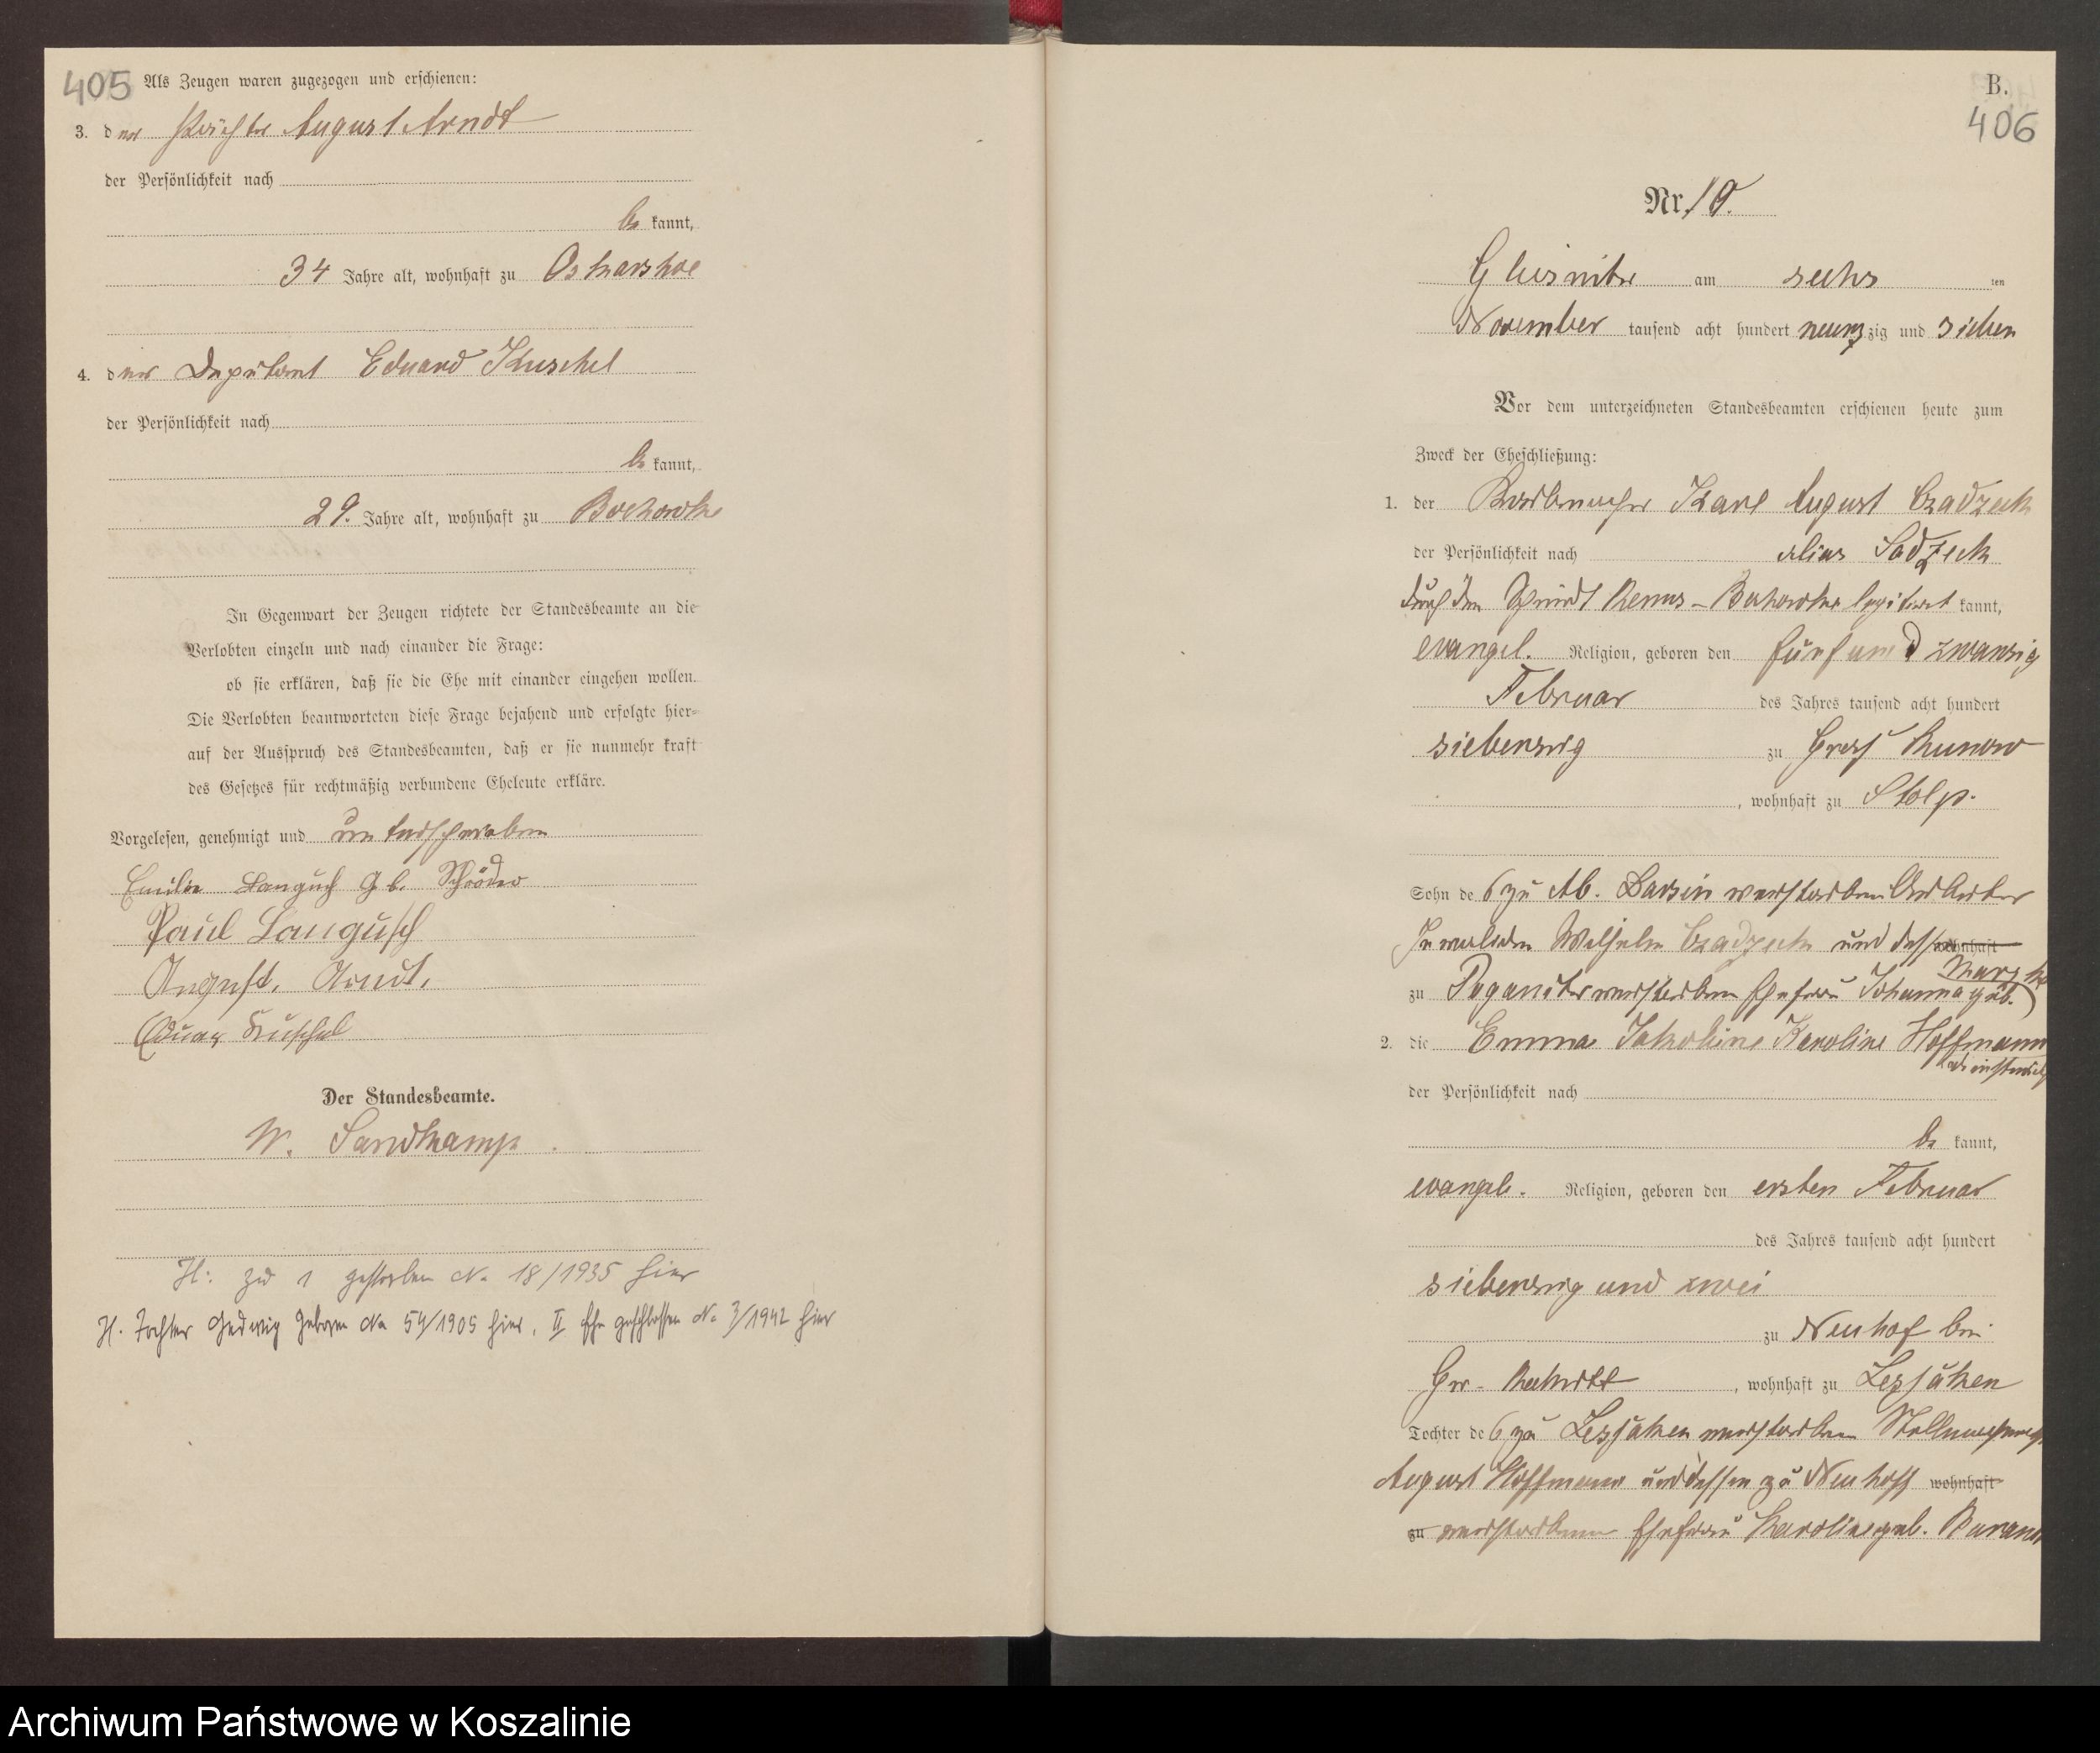 405 Als Zeugen waren zugezogen und erschienen:
3. der August Arndt
der Persönlichkeit nach
be kannt,
34 Jahre alt, wohnhaft zu
4. der Deputant Eduard Kuschel
der Persönlichkeit nach
be kannt,
29. Jahre alt, wohnhaft zu Bochowke
In Gegenwart der Zeugen richtete der Standesbeamte an die
Verlobten einzeln und nach einander die Frage:
ob sie erklären, daß sie die Ehe mit einander eingehen wollen.
Die Verlobten beantworteten diese Frage bejahend und erfolgte hier-
auf der Ausspruch des Standesbeamten, daß er sie nunmehr kraft
des Gesetzes für rechtmäßig verbundene Eheleute erkläre.
Vorgelesen, genehmigt und unterschrieben
Emilie Langusch Geb. Schröder
Paul Langusch
August. Arndt.
Eduard Kuschel
Der Standesbeamte.
W. Sandkamp
H: zu 1 gestorben No 18/1935 hier
H. Tochter Hedwig geboren No 54/1905 hier, II Ehe geschlossen No 3/1942 hier
B.
406
Nr. 19.
Glusnitz am sechs ten
November tausend acht hundert neunzig und sieben
Vor dem unterzeichneten Standesbeamten erschienen heute zum
Zweck der Eheschließung:
1. der Korbmacher Karl August Czadzeck
der Persönlichkeit nach alias Sadzeck
durch den legitimirt kannt,
evangel. Religion, geboren den fünf und zwanzig
Februar des Jahres tausend acht hundert
siebenzig zu Gross Runow
, wohnhaft zu Stolp.
Sohn de s zu Alt. Darsin verstorbenen Arbeiter
Invaliden Wilhelm Czadzeck und dessen wohnhaft
zu Poganitz verstorbenen Ehefrau Johanna geb.
2. die Emma Jakobine Karoline Hoffmann
der Persönlichkeit nach
be kannt,
evangel. Religion, geboren den ersten Februar
des Jahres tausend acht hundert
siebenzig und zwei
zu Neuhof bei
Gr. , wohnhaft zu Lessaken
Tochter de s zu Lessaken verstorbenen Stellmachers
August Hoffmann und dessen zu Neuhoff wohnhaft
zu verstorbenen Ehefrau Karoline geb.
Archiwum Państwowe w Koszalinie